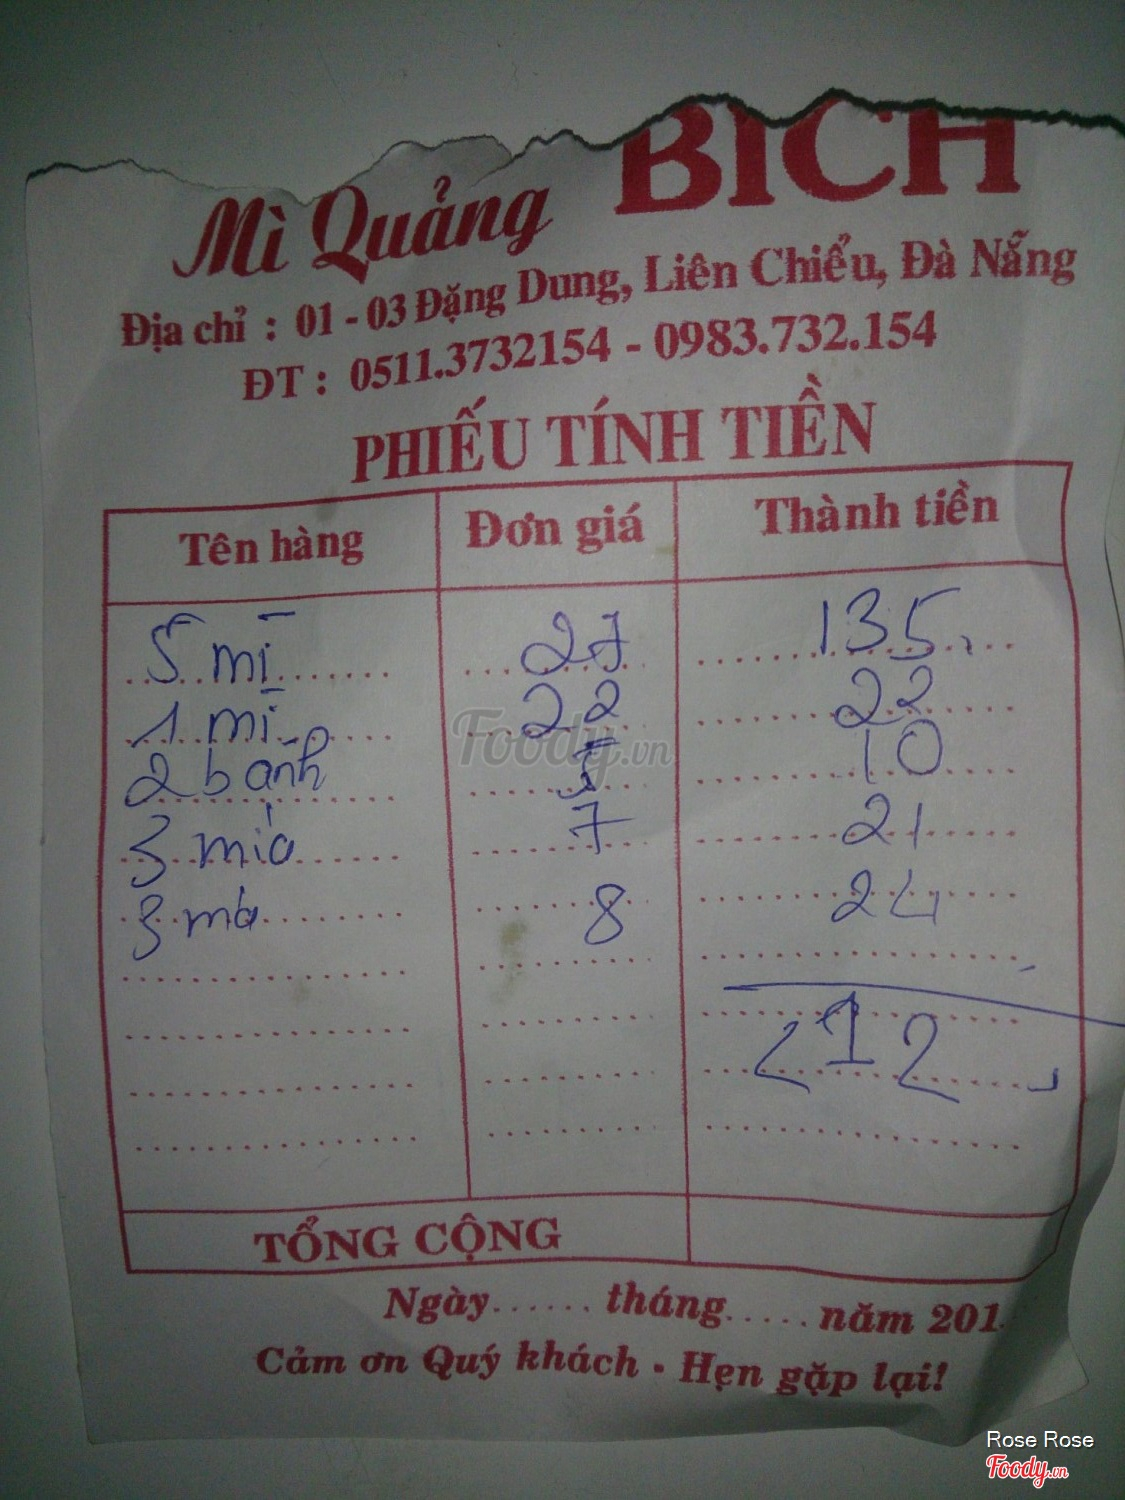 Mì Quảng BÍCH
Địa chỉ : 01 - 03 Đặng Dung, Liên Chiểu, Đà Nẵng
ĐT : 0511.3732154 - 0983.732.154
PHIẾU TÍNH TIỀN
Tên hàng Đơn giá Thành tiền
5 mì 27 135.
1 mì 22 22
2 bánh 5 10
3 mía 7 21
3 8 24
212
TỔNG CỘNG
Ngày...... tháng..... năm 201
Cảm ơn Quý khách - Hẹn gặp lại!
Foody.vn
Rose Rose
Foody.vn